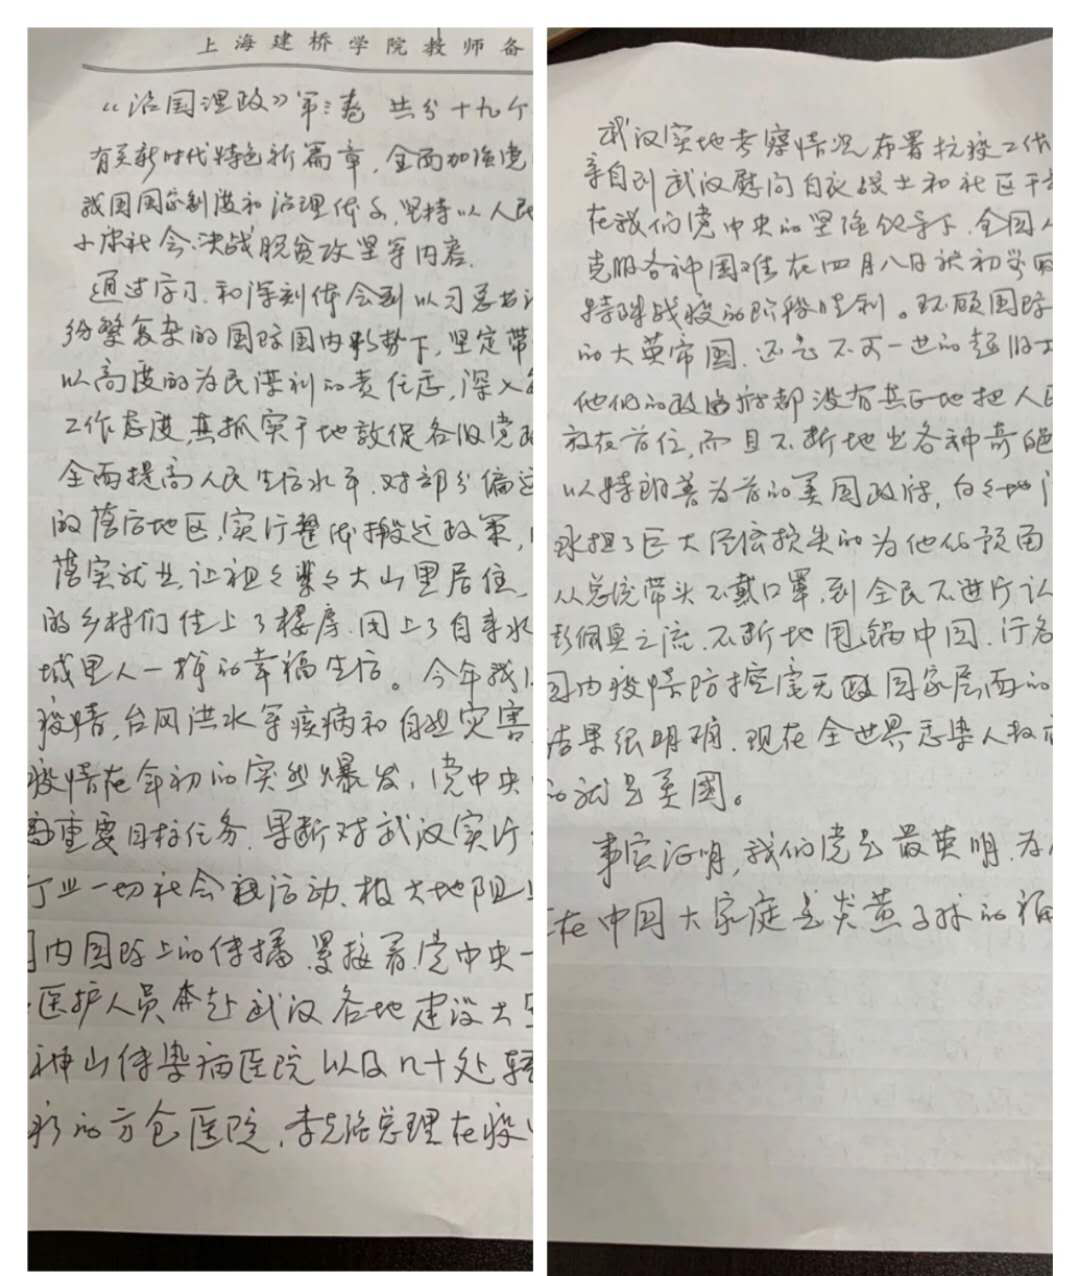 上海建桥学院教师备
《治国理政》第三卷 共分十九个
有关新时代特色新篇章,全面加强党
我国国家制度和治理体系,坚持以人民
小康社会、决战脱贫攻坚等内容.
通过学习,和深刻体会到以习总书记
纷繁复杂的国际国内形势下,坚定带
以高度的为民谋利的责任感,深入
工作态度,真抓实干地敦促各级党政
全面提高人民生活水平.对部分偏远
的落后地区,实行整体搬迁政策,
落实就业,让祖々辈々大山里居住
的乡村们住上了楼房.用上了自来水
城里人一样的幸福生活。今年我们
疫情,台风洪水等疾病和自然灾害
疫情在年初的突然爆发,党中央
重要目标任务.果断对武汉实行
行业一切社会活动、极大地阻
国内国际上的传播.紧接着,党中央一
医护人员奔赴武汉各地建设火
神山传染病医院以及几十处
的方仓医院,李克强总理在疫
武汉实地考察情况布署抗疫工作
亲自到武汉慰问白衣战士和社区干
在我们党中央的坚强领导下,全国人
克服各种困难在四月八日
特殊战疫的阶段胜利。环顾国际
的大英帝国.还是不可一世的超级大
他们的政府都没有真正地把人民
放在首位,而且不断地出各种奇葩
以特朗普为首的美国政府,白々地
承担了巨大经济损失的为他们预留
从总统带头不戴口罩,到全民不进行认
彭佩奥之流.不断地甩锅中国.
国内疫情防控毫无国家层面的
结果很明确.现在全世界感染人数
的就是美国。
事实证明,我们党是最英明.为
在中国大家庭是炎黄子孙的福